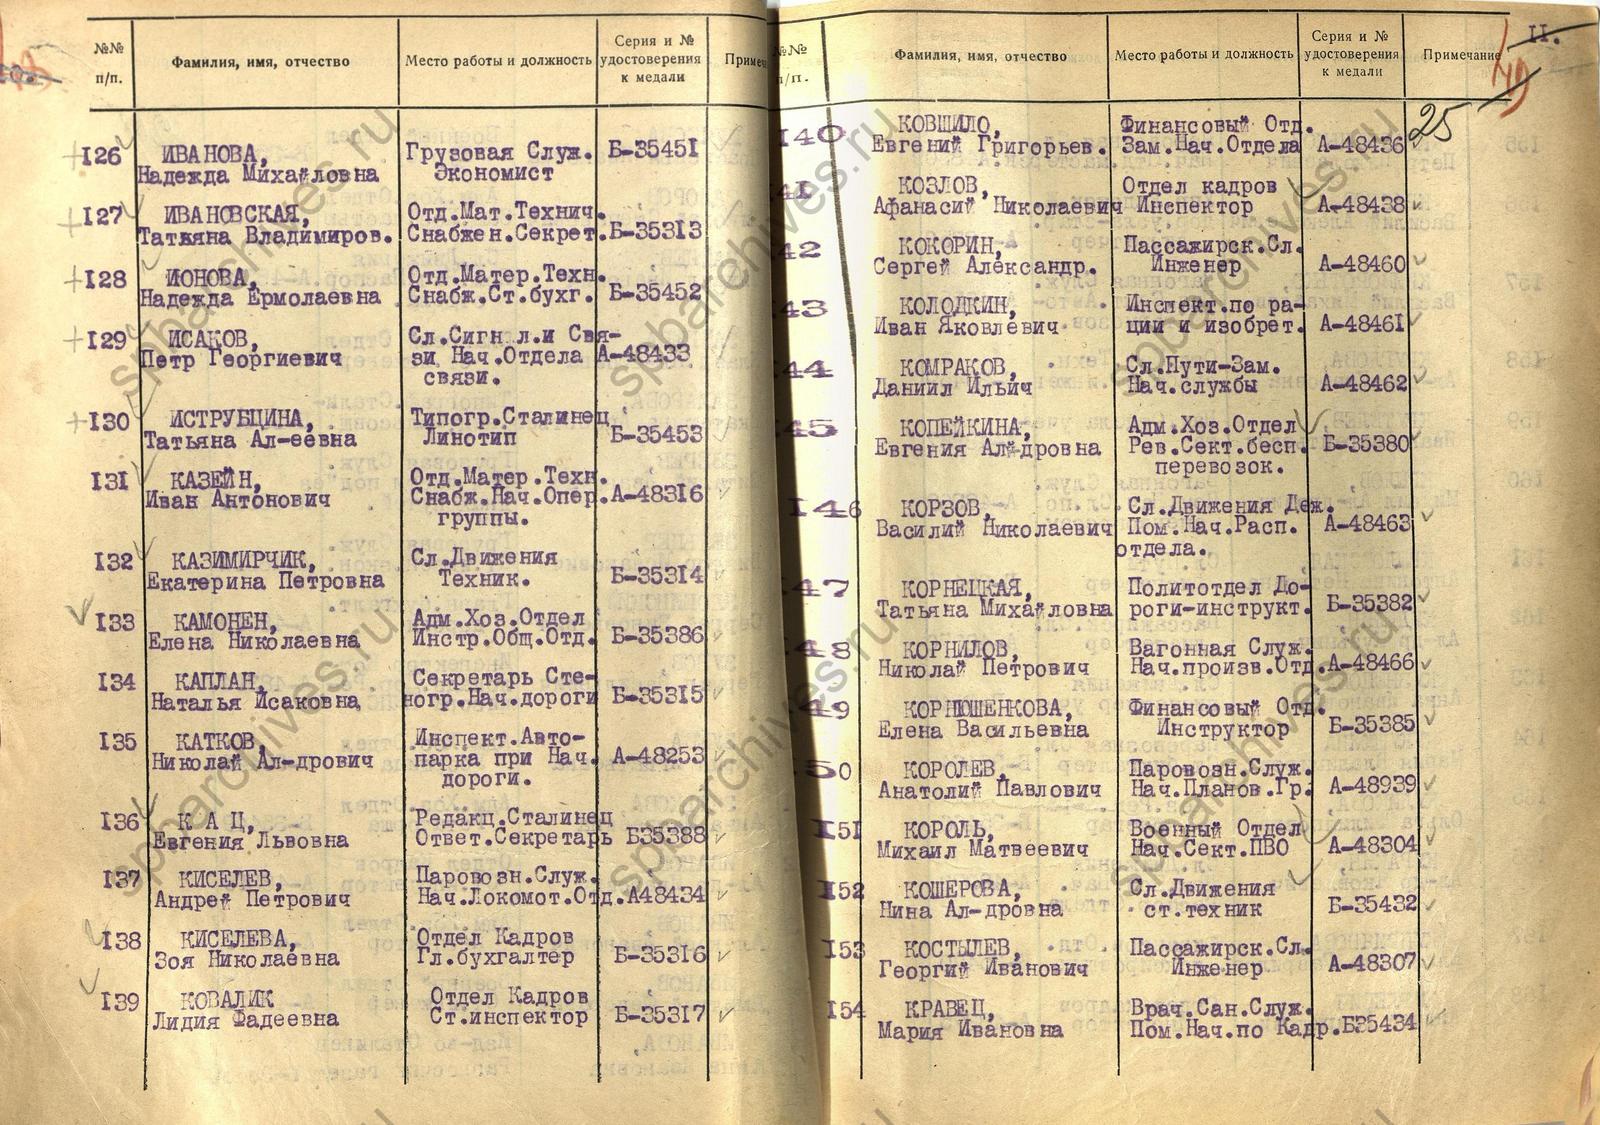 №№
п/п.
Фамилия, имя, отчество
Место работы и должность
Серия и №
удостоверения
к медали
126
ИВАНОВА,
Надежда Михайловна
Грузовая Служ.
Экономист
Б-35451
127
ИВАНОВСКАЯ,
Татьяна Владимиров.
Отд.Мат.Технич.
Снабжен.Секрет.
Б-35313
128
ИОНОВА,
Надежда Ермолаевна
Отд.Матер.Техн.
Снабж.Ст.бухг.
Б-35452
129
ИСАКОВ,
Петр Георгиевич
Сл.Сигн л.и Свя-
зи Нач.Отдела
связи.
А-48433
130
ИСТРУБЦИНА,
Татьяна Ал-еевна
Типогр.Сталинец
Линотип
Б-35453
131
КАЗЕЙН,
Иван Антонович
Отд.Матер.Техн.
Снабж.Нач.Опер.
группы.
А-48316
132
КАЗИМИРЧИК,
Екатерина Петровна
Сл.Движения
Техник.
Б-35314
133
КАМОНЕН,
Елена Николаевна
Адм.Хоз.Отдел
Инстр.Общ.Отд.
Б-35386
134
КАПЛАН,
Наталья Исаковна
Секретарь Сте-
ногр.Нач.дороги
Б-35315
135
КАТКОВ,
Николай Ал-дрович
Инспект.Авто-
парка при Нач.
дороги.
А-48253
136
К А Ц,
Евгения Львовна
Редакц.Сталинец
Ответ.Секретарь
Б35388
137
КИСЕЛЕВ,
Андрей Петрович
Паровозн.Служ.
Нач.Локомот.Отд.
А48434
138
КИСЕЛЕВА,
Зоя Николаевна
Отдел Кадров
Гл.бухгалтер
Б-35316
139
КОВАЛИК
Лидия Фадеевна
Отдел Кадров
Ст.инспектор
Б-35317
№№
п/п.
Фамилия, имя, отчество
Место работы и должность
Серия и №
удостоверения
к медали
Примечание
II.
25
140
КОВШИЛО,
Евгений Григорьев.
Финансовый Отд.
Зам.Нач.Отдела
А-48436
41
КОЗЛОВ,
Афанасий Николаевич
Отдел кадров
Инспектор
А-48438
42
КОКОРИН,
Сергей Александр.
Пассажирск.Сл.
Инженер
А-48460
43
КОЛОДКИН,
Иван Яковлевич
Инспект.по ра-
ции и изобрет.
А-48461
44
КОМРАКОВ,
Даниил Ильич
Сл.Пути-Зам.
Нач.службы
А-48462
45
КОПЕЙКИНА,
Евгения Ал-дровна
Адм.Хоз.Отдел
Рев.Сект.бесп.
перевозок.
Б-35380
146
КОРЗОВ,
Василий Николаевич
Сл.Движения Деж.
Пом.Нач.Расп.
отдела.
А-48463
47
КОРНЕЦКАЯ,
Татьяна Михайловна
Политотдел До-
роги-инструкт.
Б-35382
48
КОРНИЛОВ,
Николай Петрович
Вагонная Служ.
Нач.произв.Отд.
А-48466
49
КОРНЮШЕНКОВА,
Елена Васильевна
Финансовый Отд.
Инструктор
Б-35385
50
КОРОЛЕВ,
Анатолий Павлович
Паровозн.Служ.
Нач.Планов.Гр.
А-48939
151
КОРОЛЬ,
Михаил Матвеевич
Военный Отдел
Нач.Сект.ПВО
А-48304
152
КОШЕРОВА,
Нина Ал-дровна
Сл.Движения
ст.техник
Б-35432
153
КОСТЫЛЕВ,
Георгий Иванович
Пассажирск.Сл.
Инженер
А-48307
154
КРАВЕЦ,
Мария Ивановна
Врач.Сан.Служ.
Пом.Нач.по Кадр.
Б35434
spbarchives.ru
spbarchives.ru
spbarchives.ru
spbarchives.ru
spbarchives.ru
spbarchives.ru